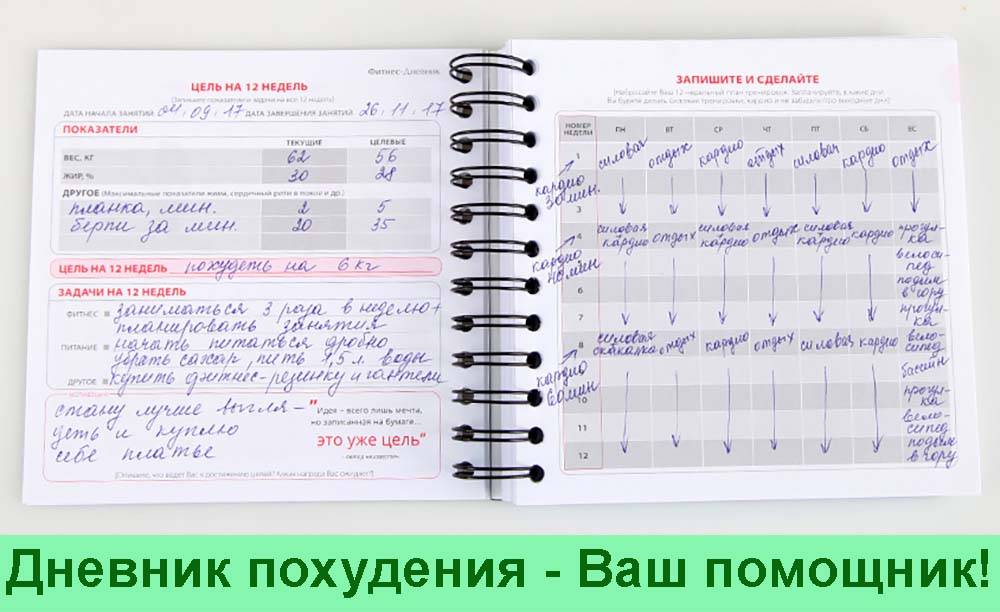 Фитнес-Дневник
ЦЕЛЬ НА 12 НЕДЕЛЬ
(Запишите показатели и задачи на все 12 недель)
ДАТА НАЧАЛА ЗАНЯТИЙ 04.09.17 ДАТА ЗАВЕРШЕНИЯ ЗАНЯТИЙ 26.11.17
ПОКАЗАТЕЛИ
ТЕКУЩИЕ ЦЕЛЕВЫЕ
ВЕС, КГ 62 56
ЖИР, % 30 28
ДРУГОЕ (Максимальные показатели жима, сердечный ритм в покое и др.)
планка, мин. 2 5
берпи за мин. 20 35
ЦЕЛЬ НА 12 НЕДЕЛЬ похудеть на 6 кг
ЗАДАЧИ НА 12 НЕДЕЛЬ
ФИТНЕС заниматься 3 раза в неделю +
планировать занятия
ПИТАНИЕ начать питаться дробно
убрать сахар, пить 1,5 л. воды
ДРУГОЕ купить фитнес-резинку и гантели
стану лучше выгля-
деть и куплю
себе платье
"Идея – всего лишь мечта,
но записанная на бумаге...
это уже цель"
ЗАПИШИТЕ И СДЕЛАЙТЕ
НОМЕР НЕДЕЛИ ПН ВТ СР ЧТ ПТ СБ ВС
1 силовая отдых кардио отдых силовая кардио отдых
кардио
30 мин.
3
4 силовая кардио отдых силовая кардио отдых силовая кардио кардио прогулка
кардио
40 мин
велосипед
6 подъем в гору
7 прогулка
8 силовая скакалка отдых кардио отдых силовая кардио велосипед
кардио
60 мин.
бассейн
10 прогулка
11 велосипед
12 подъем в гору
Дневник похудения - Ваш помощник!